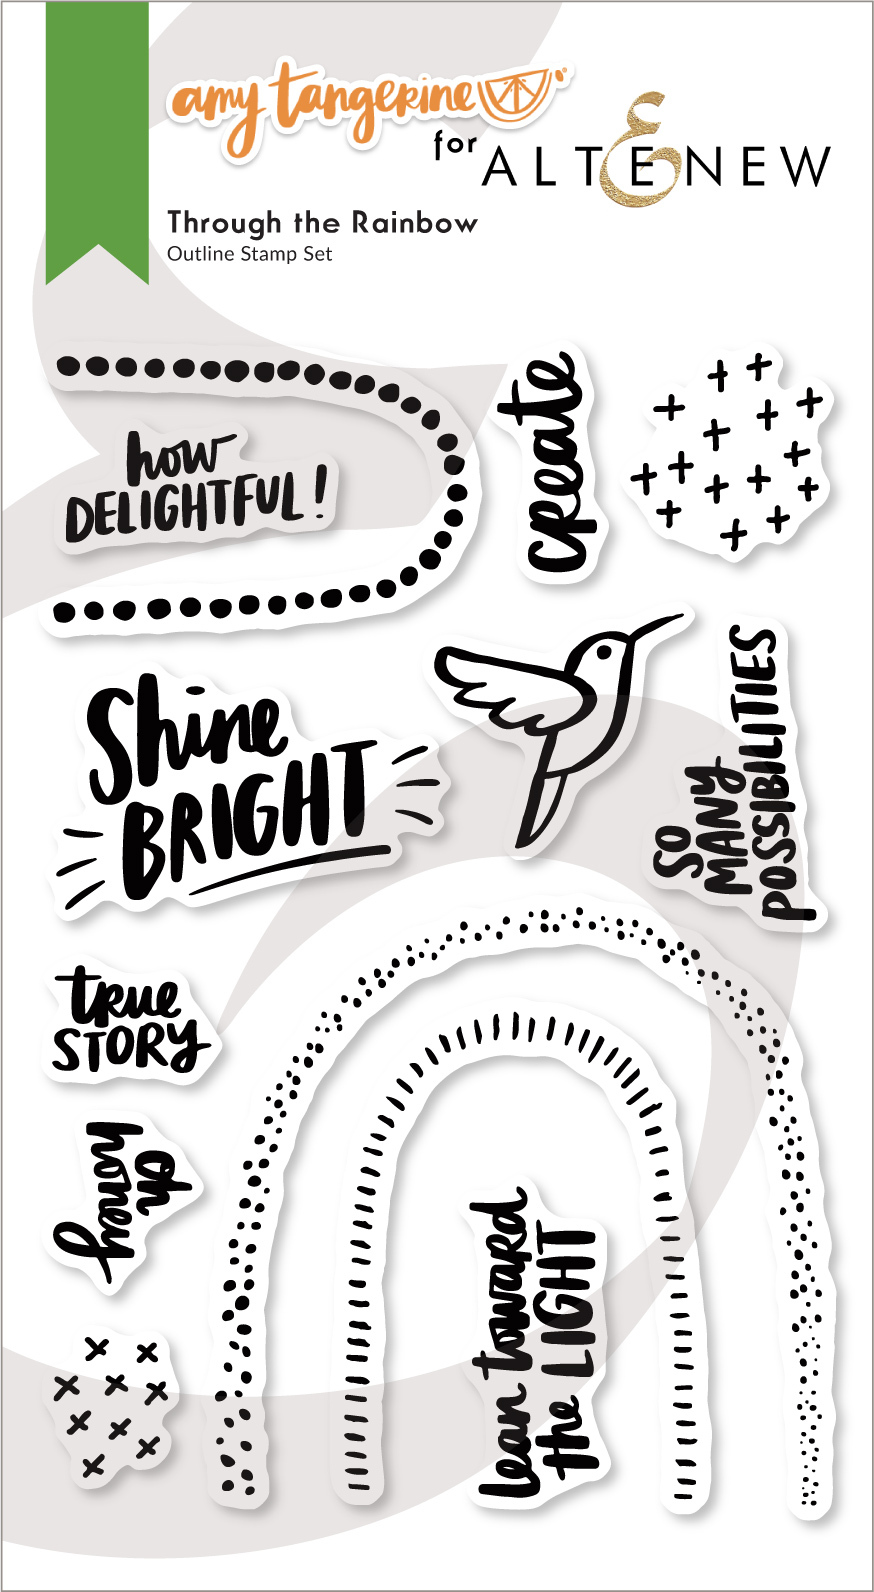 amy tangerine
for
ALTENEW
Through the Rainbow
Outline Stamp Set
how
DELIGHTFUL!
create
Shine
BRIGHT
SO
MANY
POSSIBILITIES
true
STORY
oh
honey
lean toward
the LIGHT